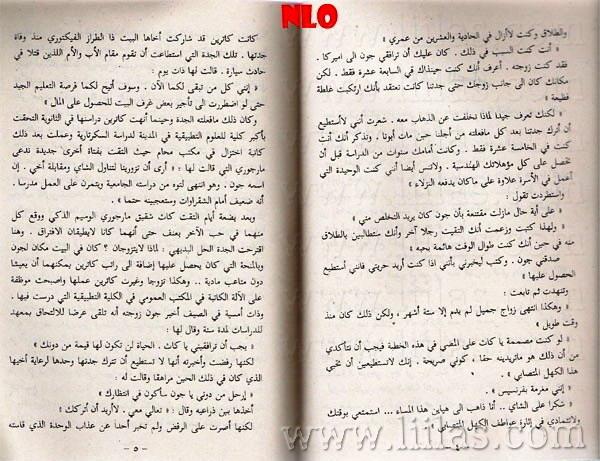 NLO
والطلاق وكنت لاأزال في الحادية والعشرين من عمري »
« أنت كنت السبب في ذلك . كان عليك أن ترافقي جون الى اميركا .
فقد كنت زوجته . أعرف أنك كنت حينذاك في السابعة عشرة فقط . لكن
مكانك كان الى جانب زوجك حتى جدتنا كانت تعتقد بأنك ارتكبت غلطة
فظيعة »
« لكنك تعرف جيدا لماذا تخلفت عن الذهاب معه . شعرت أنني لاأستطيع
أن أترك جدتنا بعد كل مافعلته من أجلنا حين مات أبونا . وتذكر أنك أنت
في الخامسة عشرة فقط . وكانت أمامك سنوات من الدراسة قبل أن
تحصل على كل مؤهلاتك الهندسية . ولاتنس أيضا أنني كنت الوحيدة التي
أعمل في الأسرة علاوة على ماكان يدفعه النزلاء »
واستطردت تقول :
« على أية حال مازلت مقتنعة بأن جون كان يريد التخلص مني »
« ولهذا كتبت وزعمت أنك التقيت رجلا آخر وأنك ستطالبين بالطلاق
منه في حين أنك كنت طوال الوقت هائمة بحبه »
صدقني جون . وكتب ليخبرني بأنني اذا كنت أريد حريتي فانني أستطيع
الحصول عليها »
وتنهدت ثم تابعت :
« وهكذا انتهى زواج جميل لم يدم إلا ستة أشهر ، ولكن ذلك كان منذ
وقت طويل »
« لو كنت مصممة يا كات على المضي في هذه الخطة فيجب أن تتأكدي
من أن ذلك هو ماتريدينه حقا ، كوني صريحة . إنك لاتستطيعين أن تحبي
هذا الكهل المتصابي »
« إنني مغرمة بفرنسيس »
« شكرا على الشاي .. أنا ذاهب الى هياين هذا المساء ... استمتعي بوقتك
ولاتتمادي في إثارة عواطف الكهل المتصابي »
٤
كانت كاترين قد شاركت أخاها البيت ذا الطراز الفيكتوري منذ وفاة
جدتها . تلك الجدة التي استطاعت أن تقوم مقام الأب والأم اللذين قتلا في
حادث سيارة . قالت لها ذات يوم :
« إنني كل من تبقى لكما الآن . وسوف أتيح لكما فرصة التعليم الجيد
حتى لو اضطررت الى تأجير بعض غرف البيت للحصول على المال »
وكان ذلك مافعلته الجدة وحينما أنهت كاترين دراستها في الثانوية التحقت
بأكبر كلية للعلوم التطبيقية في المدينة لدراسة السكرتارية وعملت بعد ذلك
كاتبة اختزال في مكتب محام حيث التقت بفتاة أخرى جديدة تدعى
مارجوري التي قالت لها : « أرى أن تزورينا لتناول الشاي ومقابلة أخي . إن
اسمه جون . وهو انتهى لتوه من دراسته الجامعية ويتمرن على العمل مدرسا .
أنه ضعيف أمام الشقراوات وستعجبينه حتما »
وبعد بضعة أيام التقت كات شقيق مارجوري الوسيم الذكي ووقع كل
منهما في حب الآخر بعنف حتى أنهما كانا لايطيقان الافتراق . وهنا
اقترحت الجدة الحل البديهي : لماذا لايتزوجان ؟ كان في البيت مكان لجون
وبالمنحة التي كان يحصل عليها إضافة الى راتب كاترين يمكنهما أن يعيشا
دون متاعب مادية .. وهكذا تزوجا وغيرت كاترين عملها واصبحت موظفة
على الآلة الكاتبة في المكتب العمومي في الكلية التطبيقية التي درست فيها .
وذات أمسية في الصيف أخبر جون زوجته أنه تلقى عرضا للالتحاق بمعهد
للدراسات لمدة سنة وقال لها :
« يجب أن ترافقيني يا كات . الحياة لن تكون لها قيمة من دونك »
لكنها رفضت وأخبرته أنها لا تستطيع أن تترك جدتها وحدها لرعاية أخيها
الذي كان في ذلك الحين مراهقا وقالت له :
« إرحل من دوني يا جون سأكون في انتظارك »
أخذها بين ذراعيه وقال : « تعالي معي . لاأريد أن أتركك »
لكنها أصرت على الرفض ولم تخبر أحدا عن عذاب الوحدة الذي قاسته
- ٥ -
www.liilas.com